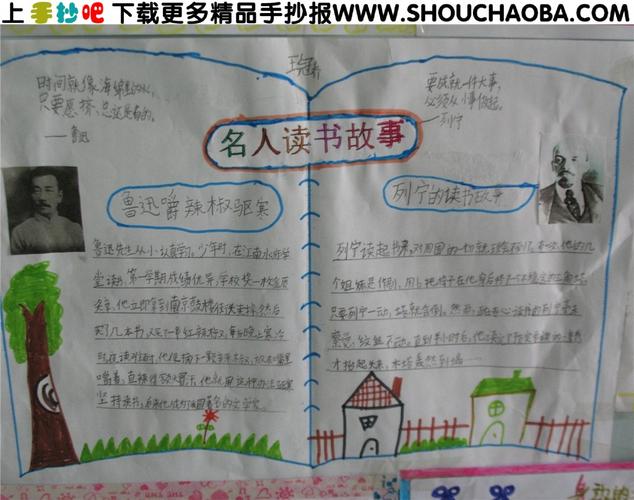 上手抄吧 下载更多精品手抄报WWW.SHOUCHAOBA.COM
时间就像海绵里的水,
只要愿挤,总还是有的。
——鲁迅
要成就一件大事,
必须从小事做起。
——列宁
名人读书故事
鲁迅嚼辣椒驱寒
鲁迅先生从小认真学习。少年时,在江南水师学
堂读书,第一学期成绩优异,学校奖一枚金质
奖章。他立即拿到南京鼓楼街头卖掉,然后
买了几本书,又买了一串红辣椒。每当晚上寒冷
时,夜读难耐,他便摘下一颗辣椒,放在嘴里
嚼着,直辣得额头冒汗。他就用这种办法驱寒
坚持读书,后来他成为我国著名的文学家
列宁的读书故事
列宁读起书来,对周围的一切就
个姐妹
只要列宁一动,塔就会倒。然而,
察觉,纹丝不动。直到半小时后,他读
才抬起头来,木塔轰然倒塌……